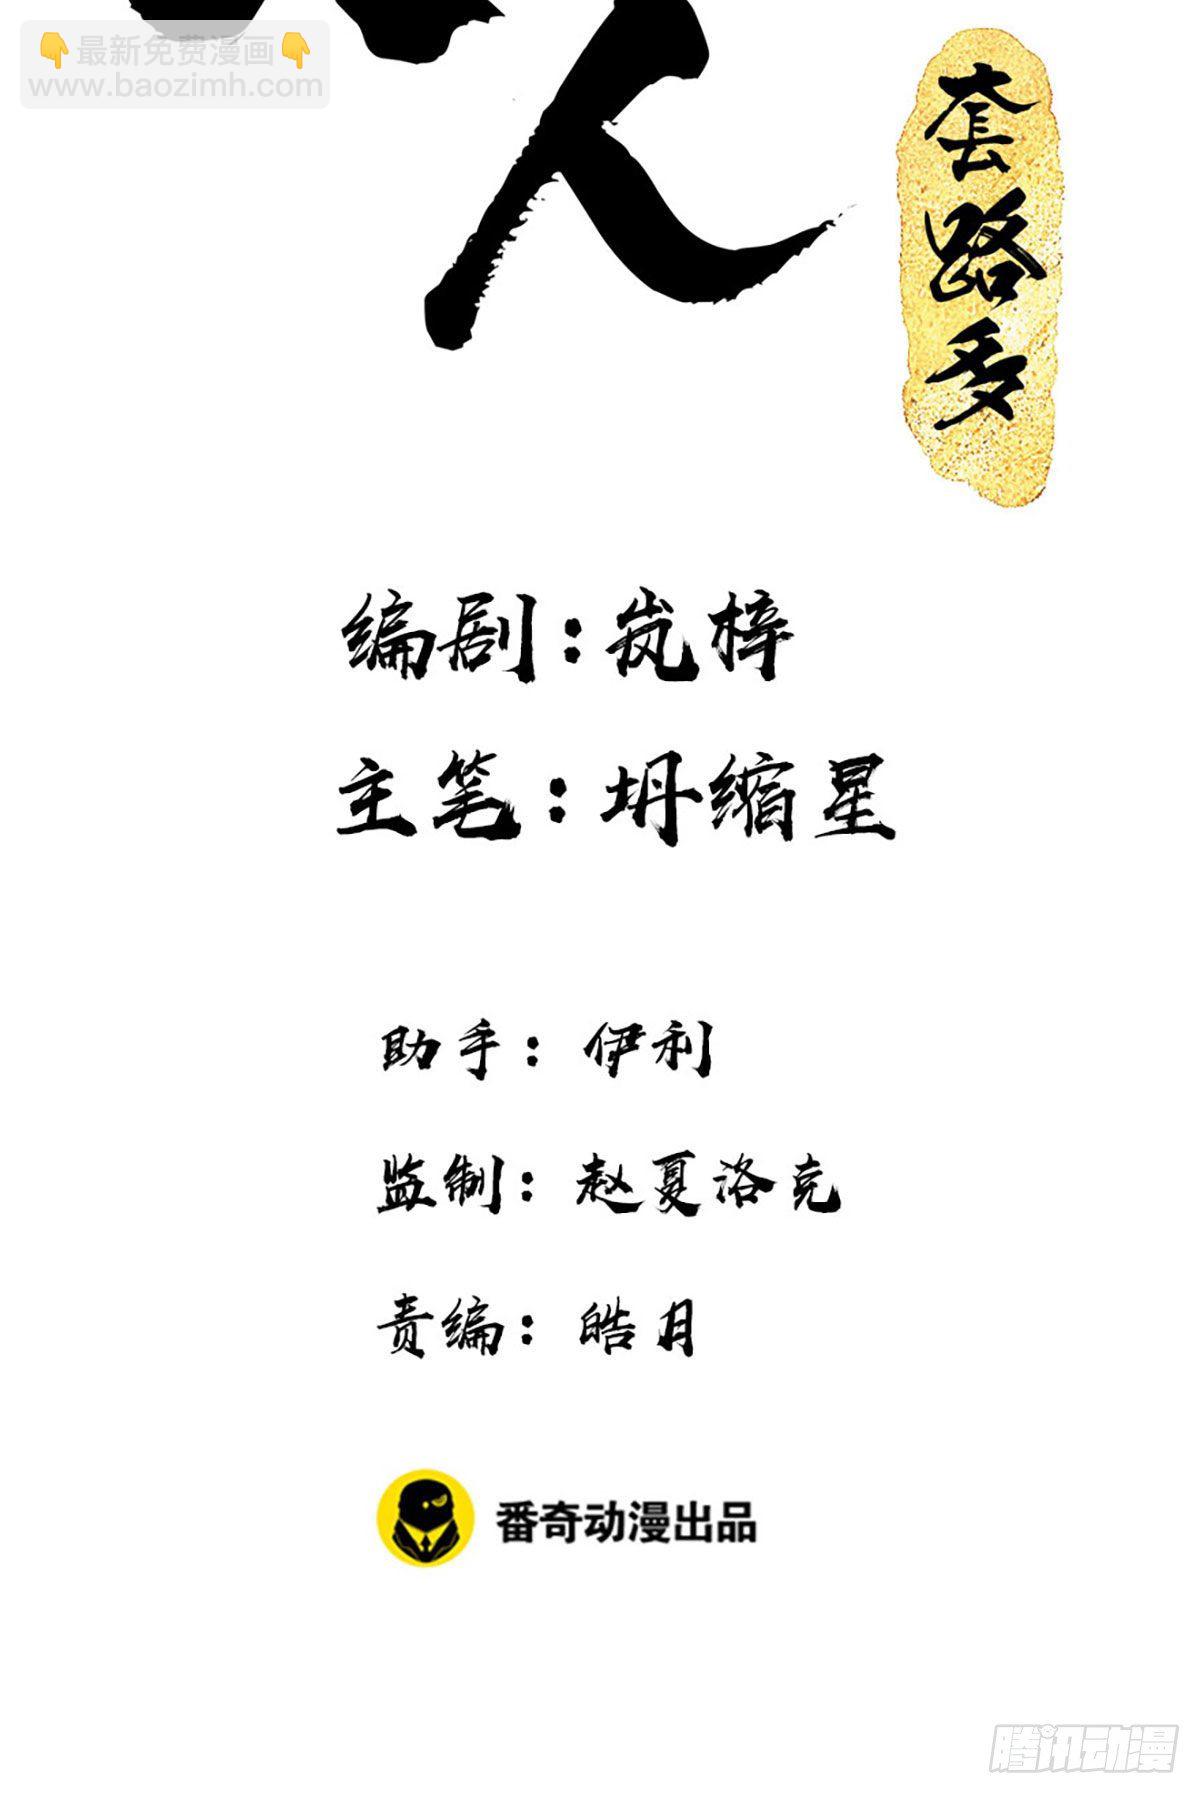 👇最新免费漫画👇
www.baozimh.com
人
套路多
编剧:岚梓
主笔:坍缩星
助手: 伊利
监制: 赵夏洛克
责编: 皓月
番奇动漫出品
腾讯动漫